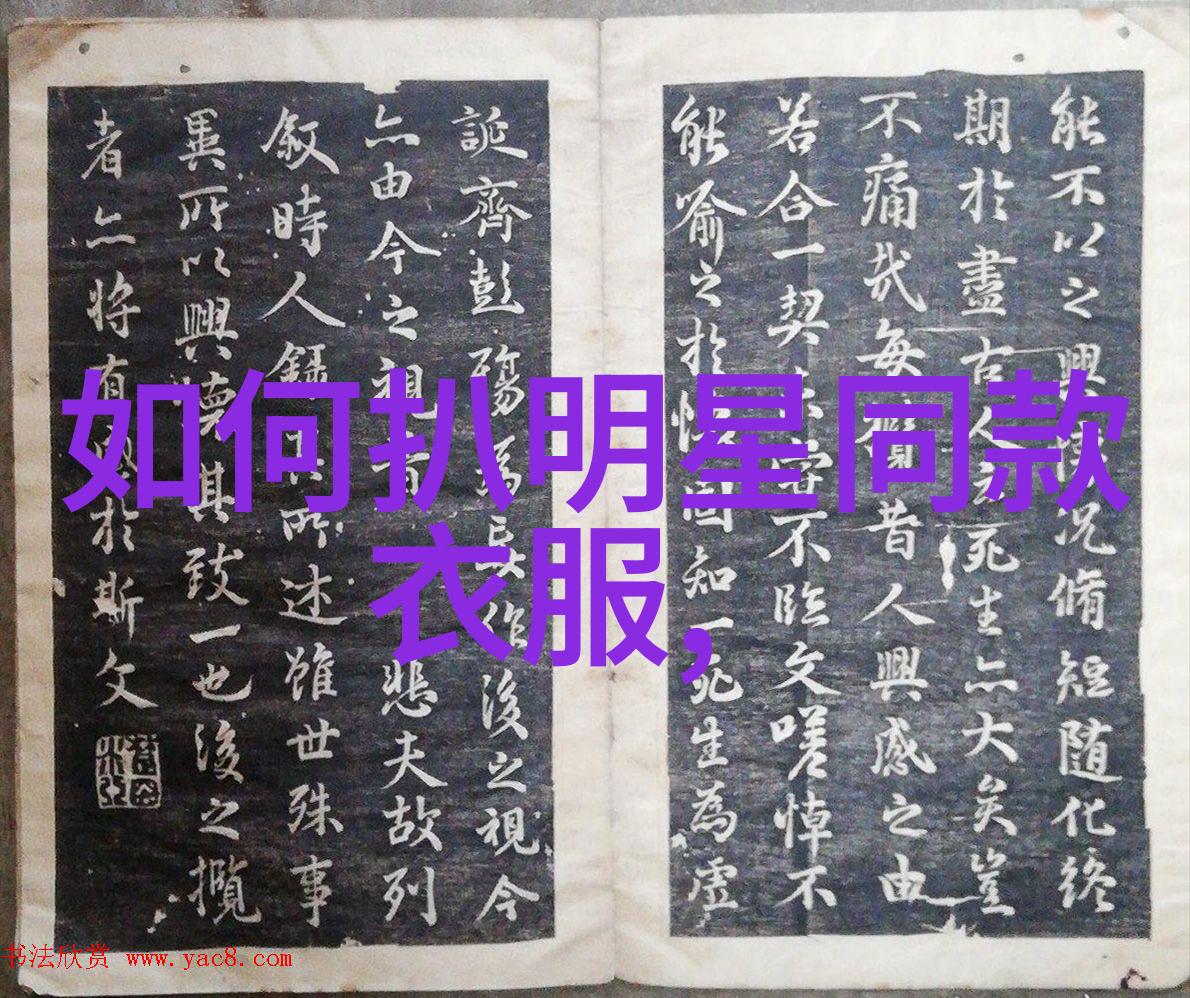 如何扒明星同款
衣服,
能不以之興懷況脩短随化終
期於盡古人云死生亦大矣豈
不痛哉每攬昔人興感之由
若合一契未嘗不臨文嗟悼不
能喻之於懷固知一死生為虛
誕齊彭殤為妄作後之視今
亦由今之視昔悲夫故列
敘時人錄其所述雖世殊事
異所以興懷其致一也後之攬
者亦將有感於斯文
书法欣赏 www.yac8.com